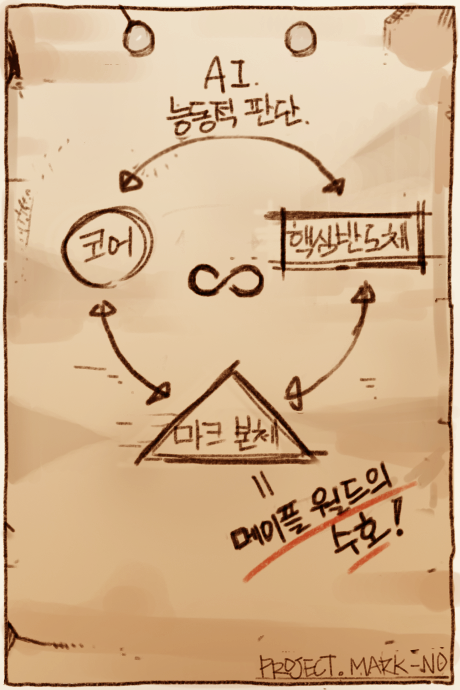 AI.
능동적 판단.
코어
핵심반도체
∞
마크 본체
=
메이플 월드의
수호!
PROJECT. MARK-NO